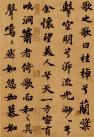 歌之歌曰桂棹兮蘭槳
擊空明兮泝流光渺渺兮
余懷望美人兮天一方客有
吹洞簫者倚歌而和之其
聲嗚嗚然如怨如慕如